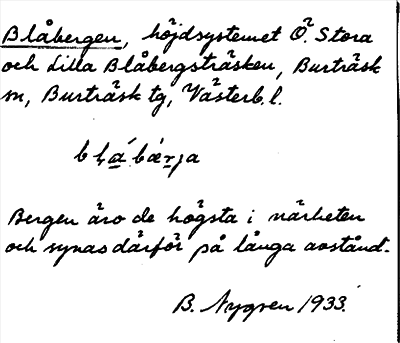 Blåbergen, höjdsystemet Ö. Stora
och Lilla Blåbergsträsken, Burträsk
sn, Burträsk tg, Västerb.l.
Bergen äro de högsta i närheten
och synas därför på långa avstånd.
B. Nygren 1933.